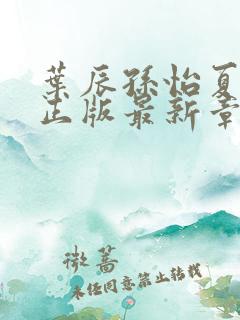 葉辰孫怡夏
正版最新章
微蔷
未经同意禁止转载